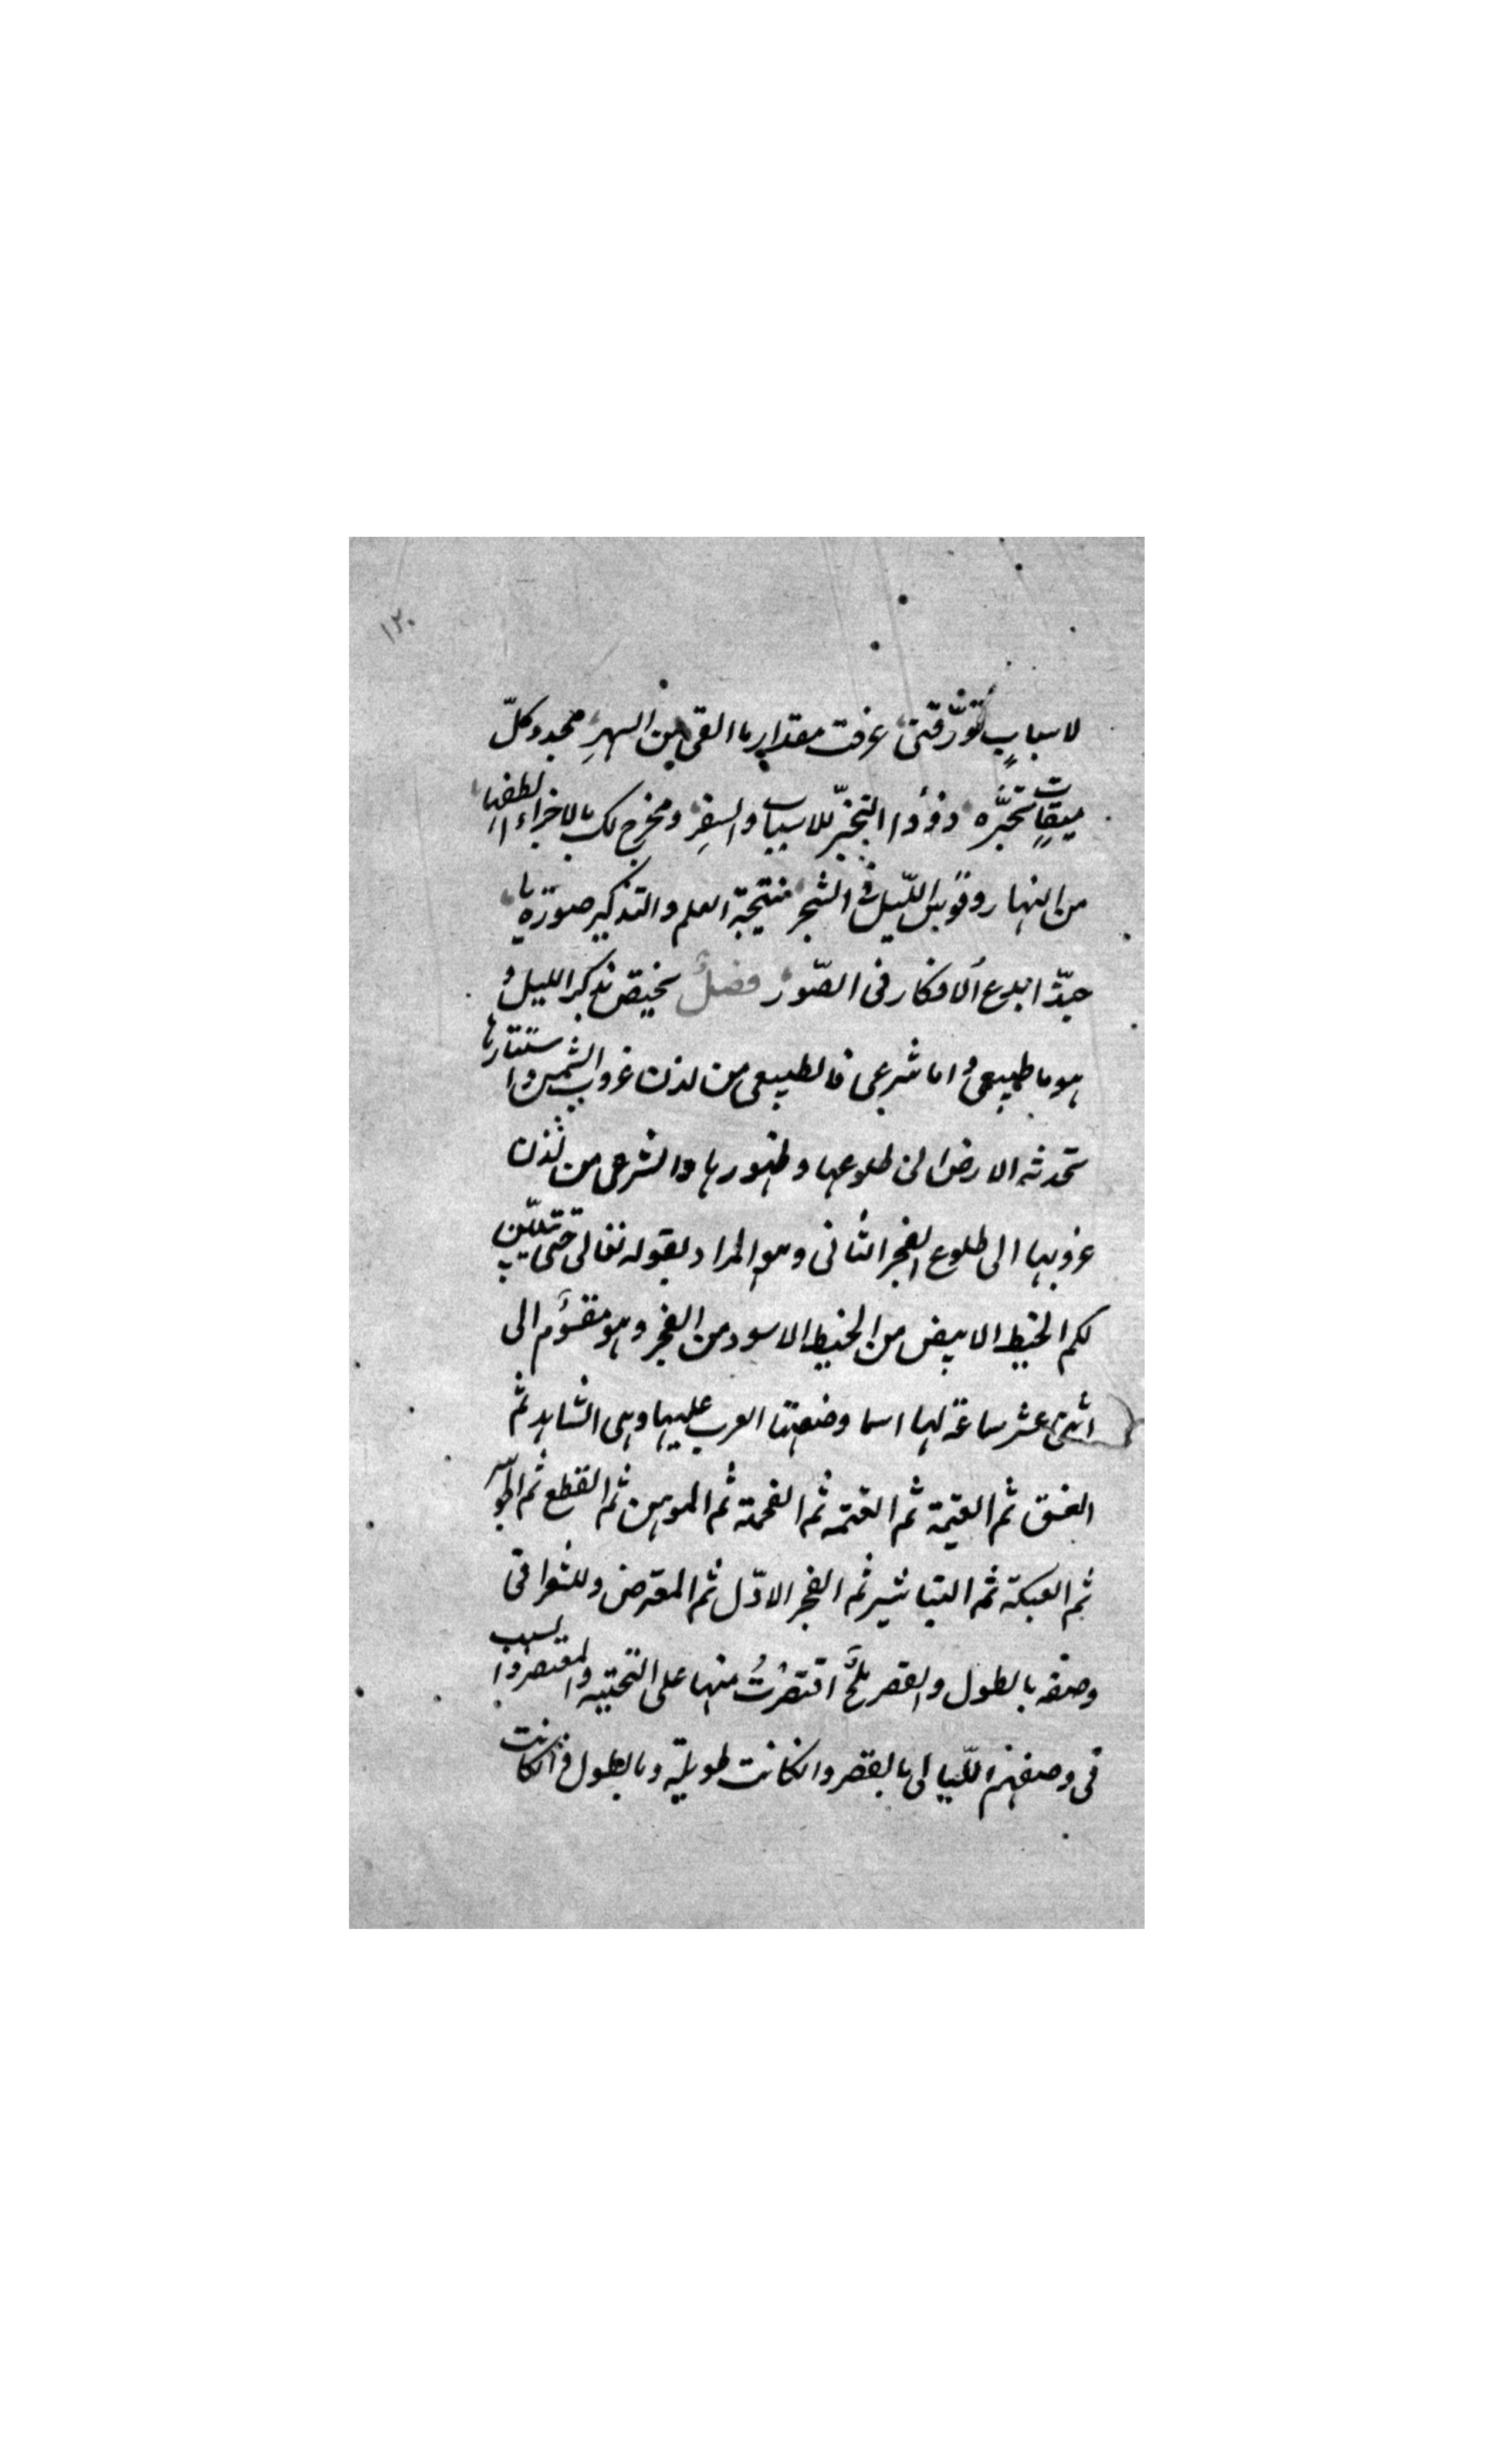 ١٢٠
لاسبابٍ تؤرّقنى عرفت مقدار ما القى من السهرِ محجد وكلّ
ميقات تخبّره وفؤدا التخبّر للاسباب والسفر ومخرج لك بالاجزاء الطفها
من النهار وقوبل الليل فى الشجر نتيجة العلم والتذكير صورته يا
حبّذا بدع الافكار فى الصّور فصلٌ يختص بذكر الليل و
هو ما طبيعى واما شرعى فالطبيعى من لدن غروب الشمس واستتارها
تحدثه الارض الى طلوعها وظهورها والشرعى من لدن
غروبها الى طلوع الفجر الثانى وهو المراد بقوله تعالى حتى يتبيّن
لكم الخيط الابيض من الخيط الاسود من الفجر وهو مقسوم الى
اثنى عشر ساعة لها اسما وضعتها العرب عليها وهى الشاهد ثم
الغسق ثم العتمة ثم الفحمة ثم الموهن ثم القطع ثم
ثم العبكة ثم التباشير ثم الفجر الاوّل ثم المعترض وللشعرا فى
وصفه بالطول والقصر ملح اقتصرت منها على والسبب
فى وصفهم الليالى بالقصر وان كانت طويلة وبالطول وان كانت